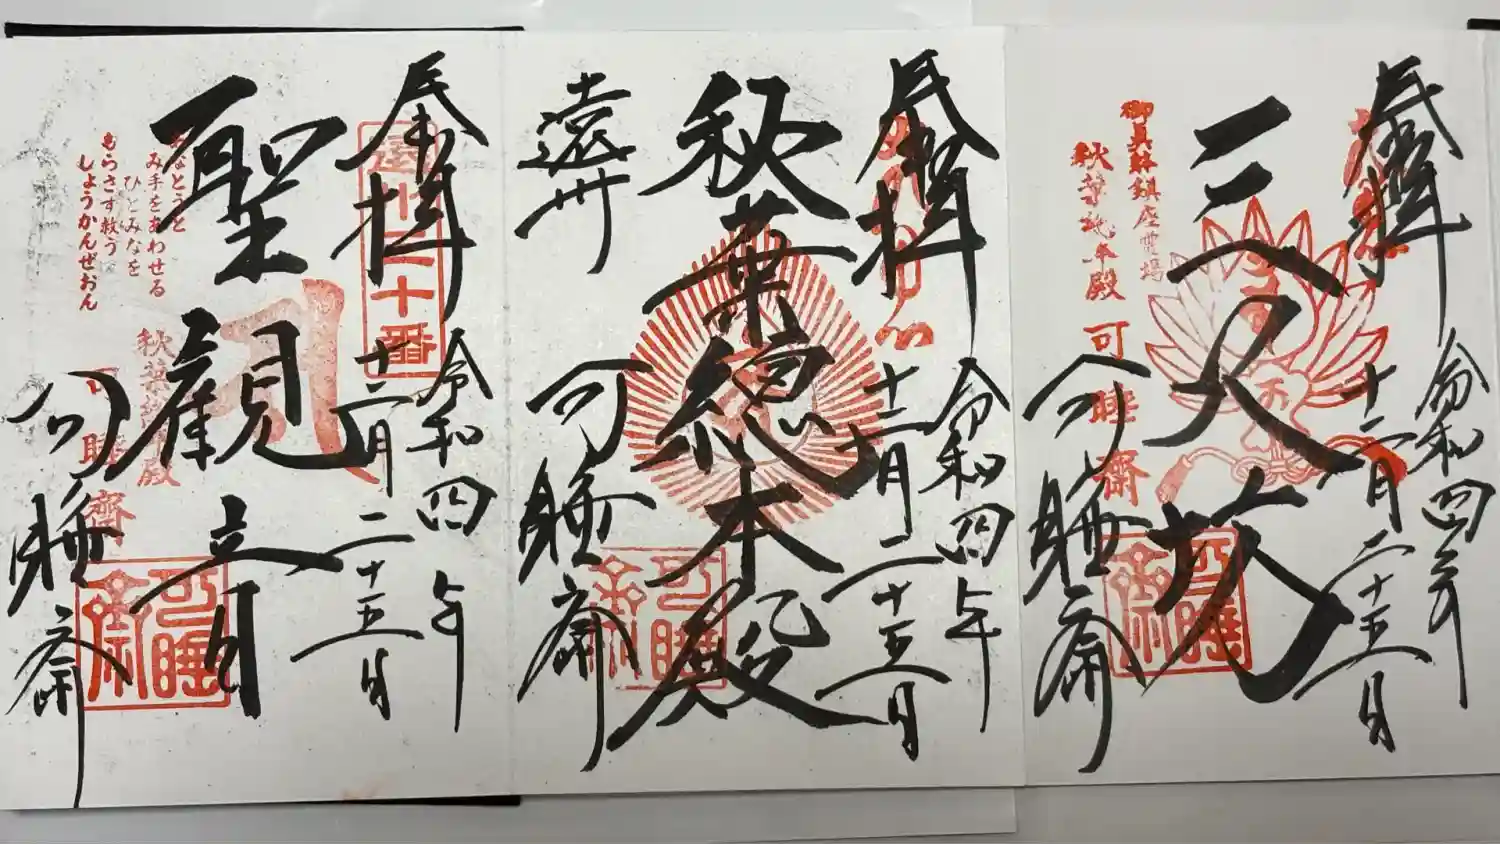 奉拝
令和四年
十二月二十五日
三尺坊
御真躰鎮座霊場
秋葉総本殿
可睡齋
可睡齋
可睡
奉拝
令和四年
十二月二十五日
秋葉總本殿
遠州
可睡齋
可睡
奉拝
令和四年
十二月二十五日
遠州三十三番
聖観音
み手をあわせる
ひとみなを
もらさず救う
しょうかんぜおん
可睡齋
可睡齋
可睡